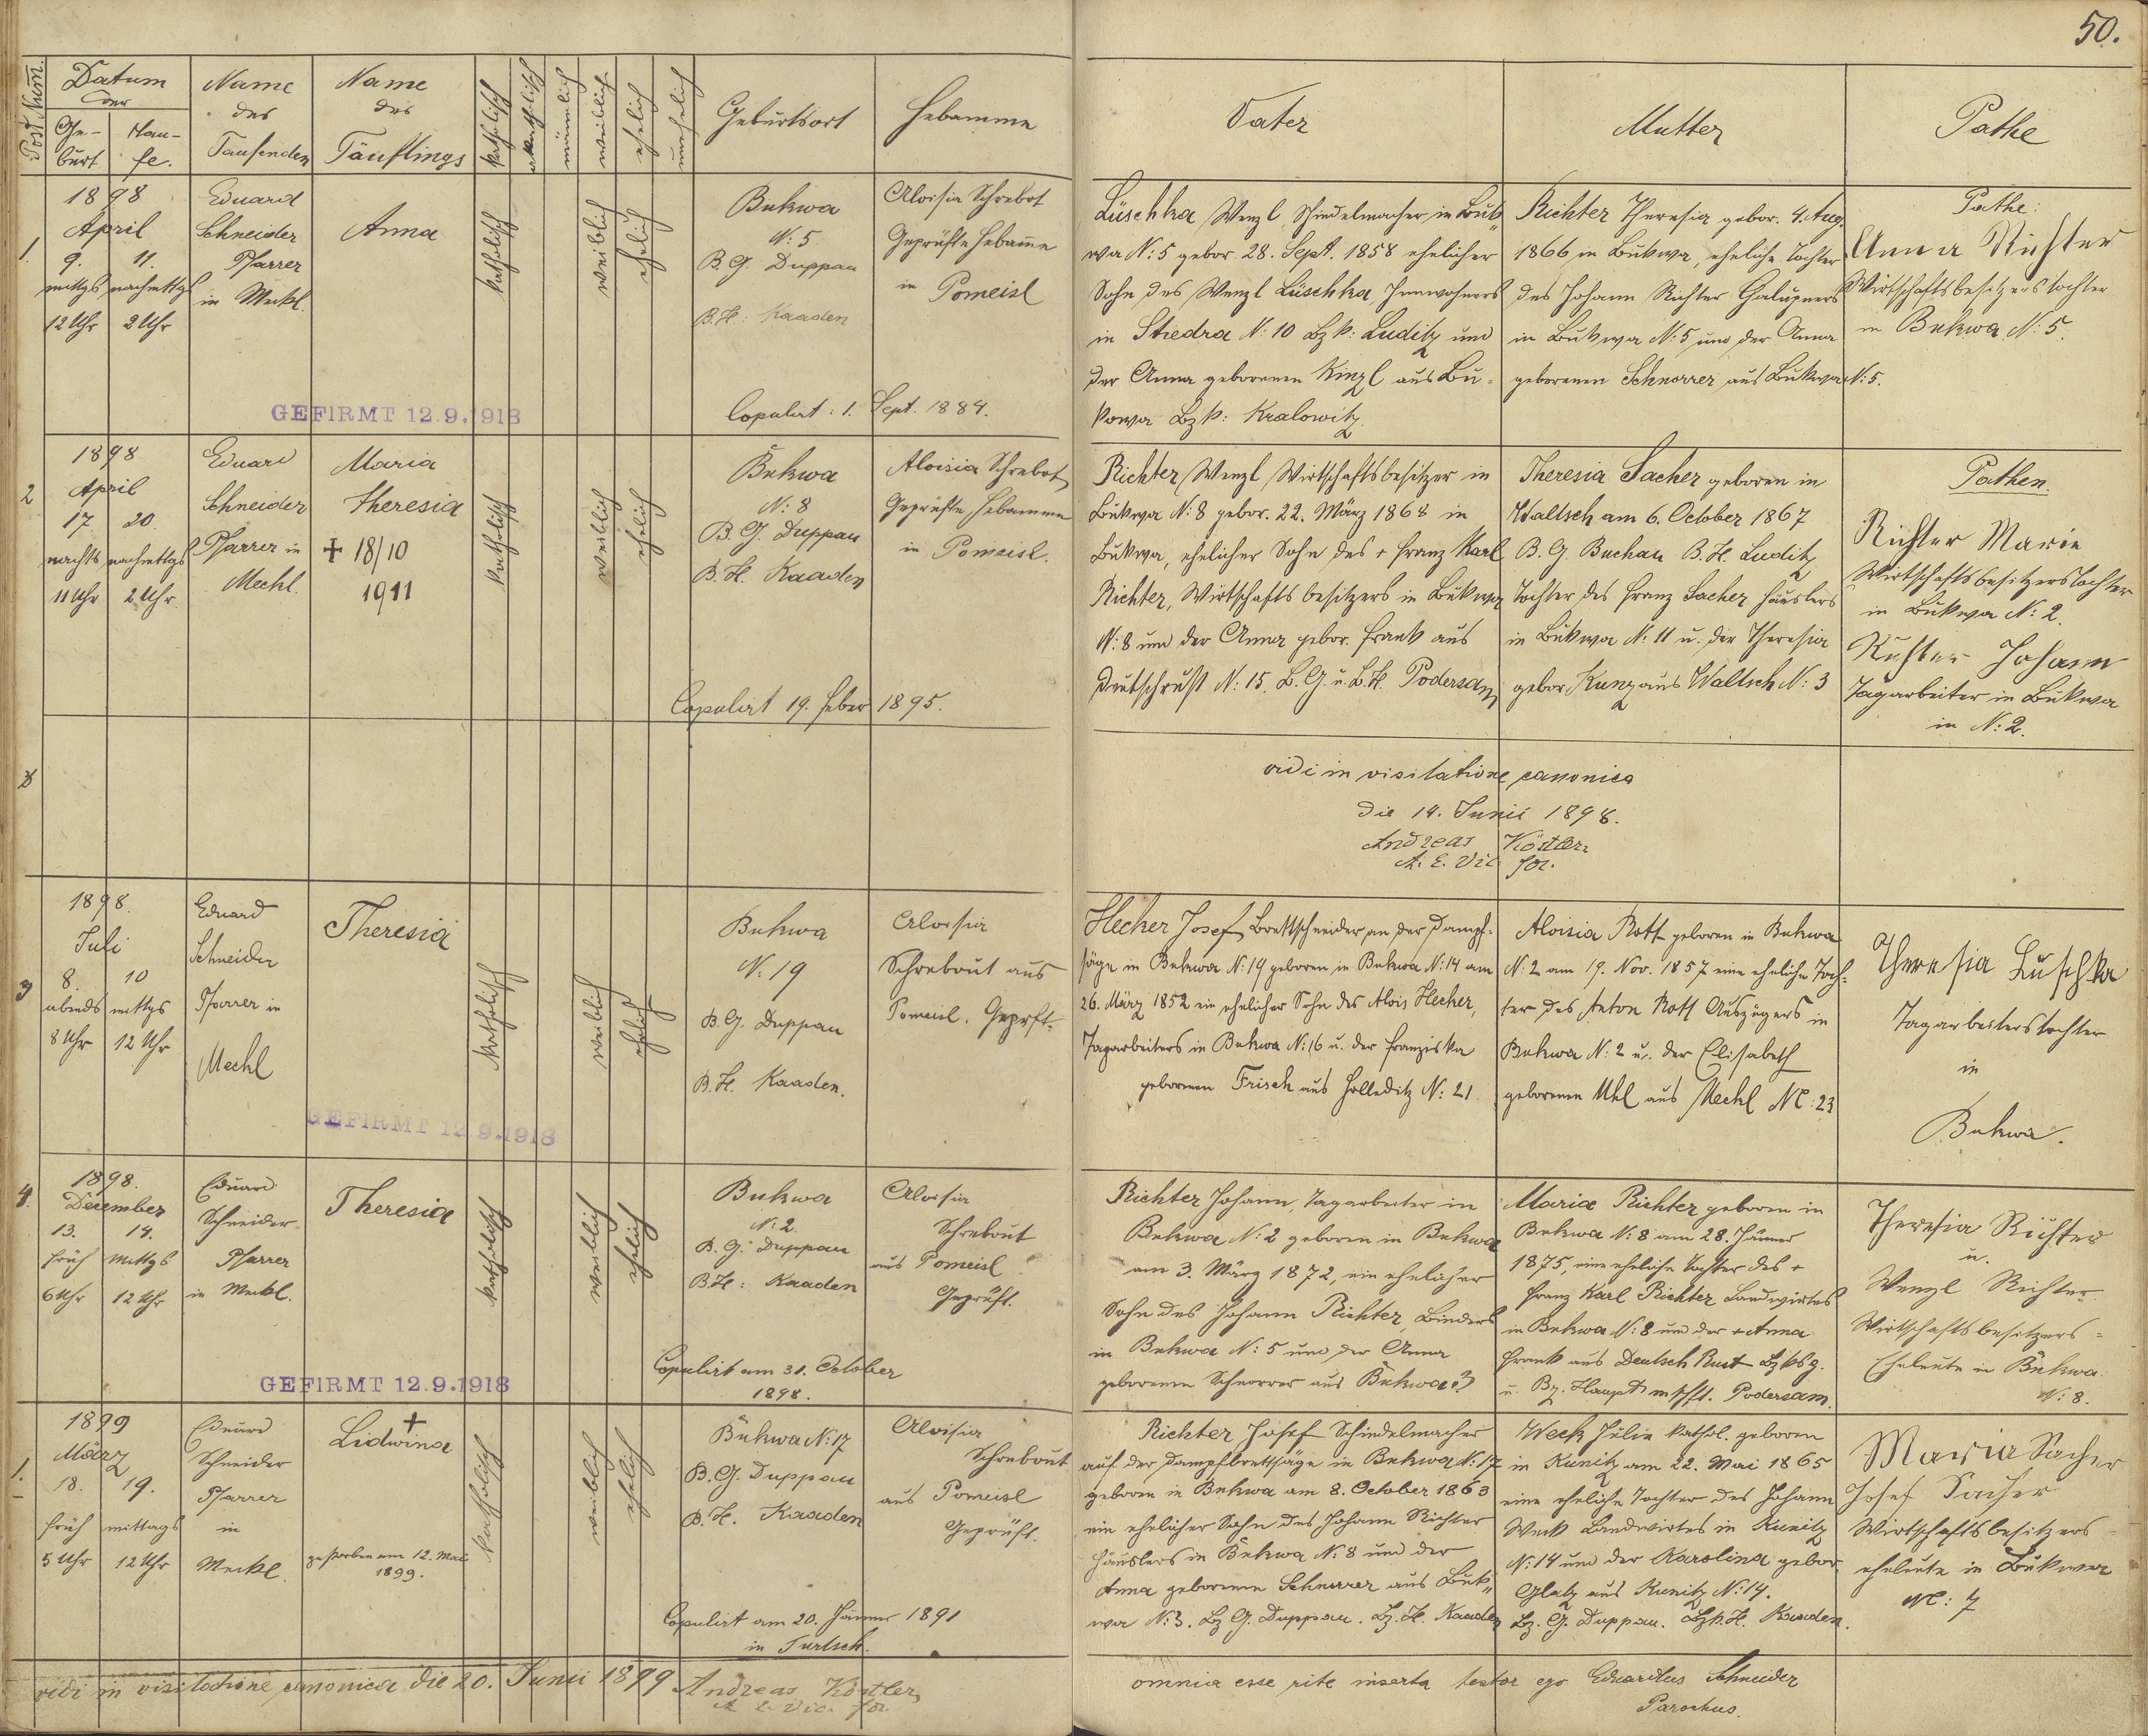 50.
Post Num.
Datum
der
Ge-
burt
Tau-
fe.
Name
des
Taufenden
Name
des
Täuflings
katholisch
akatholisch
männlich
weiblich
ehelich
unehelich
Geburtsort
Hebamme
Vater
Mutter
Pathe
1.
1898
April
9. 11.
mittgs nachmittgs
12 Uhr 2 Uhr
Eduard
Schneider
Pfarrer
in Meckl.
Anna
katholisch
weiblich
ehelich
Bukwa
N: 5
B. G. Duppau
B. H: Kaaden
Aloisia Schrebot
Geprüfte Hebamme
in Pomeisl
Copulirt: 1. Sept. 1884.
GEFIRMT 12.9.1918
Lüschka Wenzl, Schindelmacher in Buk„
wa N: 5 gebor. 28. Sept. 1858 ehelicher
Sohn des Wenzl Lüschka Innwohners
in Stredra N: 10 Bzk: Luditz und
der Anna geborenen Kinzl aus Bu-
kowa Bzk: Kralowitz.
Richter Theresia gebor. 4. Aug.
1866 in Bukwa, eheliche Tochter
des Johann Richter Chalupners
in Bukwa N: 5 und der Anna
geborenen Schnorrer aus Bukwa N: 5.
Pathe:
Anna Richter
Wirtschaftsbesitzerstochter
in Bukwa N: 5.
2
1898
April
17. 20.
nachts nachmittgs
11 Uhr 2 Uhr
Eduard
Schneider
Pfarrer in
Mechl.
Maria
Theresia
+ 18/10
1911
katholisch
weiblich
ehelich
Bukwa
N: 8
B. G. Duppau
B. H. Kaaden
Aloisia Schrebot
Geprüfte Hebamme
in Pomeisl.
Copulirt 19. Feber 1895.
Richter Wenzl Wirtschaftsbesitzer in
Bukwa N: 8 gebor. 22. März 1868 in
Bukwa, ehelicher Sohn des + Franz Karl
Richter, Wirtschaftsbesitzers in Bukwa
N: 8 und der Anna gebor. Frank aus
Deutschrust N: 15. B. G. u. B. H. Podersam
Theresia Sacher geboren in
Waltsch am 6. October 1867
B. G Buchau B. H. Luditz
Tochter des Franz Sacher Häuslers
in Bukwa N: 11 u. der Theresia
gebor. Kunz aus Waltsch N: 3
Pathen.
Richter Marie
Wirtschaftsbesitzerstochter
in Bukwa N: 2.
Richter Johann
Tagarbeiter in Bukwa
in N: 2.
vidi in visitatione canonica
die 14. Junii 1898.
Andreas Köstler
A. E. Vic. for.
3
1898.
Juli
8. 10
abends mittgs
8 Uhr 12 Uhr
Eduard
Schneider
Pfarrer in
Mechl
Theresia
katholisch
weiblich
ehelich
Bukwa
N: 19
B. G. Duppau
B. H. Kaaden.
Aloisia
Schrebout aus
Pomeisl. Geprft.
GEFIRMT 12.9.1918
Hecher Josef, Brettschneider an der Dampf-
säge in Bukwa N: 19 geboren in Bukwa N: 14 am
26. März 1852 ein ehelicher Sohn des Alois Hecher,
Tagarbeiters in Bukwa N: 16 u. der Franziska
geborenen Frisch aus Holleditz N: 21
Aloisia Rott geboren in Bukwa
N: 2 am 19. Nov. 1857 eine eheliche Toch-
ter des Anton Rott Auszügers in
Bukwa N: 2 u. der Elisabeth
geborenen Uhl aus Mechl NC: 23
Theresia Luschka
Tagarbeiterstochter
in
Bukwa.
4.
1898.
December
13. 14.
früh Mittgs
6 Uhr 12 Uhr
Eduard
Schneider
Pfarrer
in Meckl.
Theresia
katholisch
weiblich
ehelich
Bukwa
N: 2.
B. G. Duppau
B. H: Kaaden
Aloisia
Schrebout
aus Pomeisl
Geprüft.
Copulirt am 31. October
1898.
GEFIRMT 12.9.1918
Richter Johann, Tagarbeiter in
Bukwa N: 2 geboren in Bukwa
am 3. März 1872, ein ehelicher
Sohn des Johann Richter, Binders
in Bukwa N: 5 und der Anna
geborenen Schnorrer aus Bukwa 3
Maria Richter geboren in
Bukwa N: 8 am 28. Jänner
1875, eine eheliche Tochter des +
Franz Karl Richter Landwirtes
in Bukwa N: 8 und der + Anna
Frank aus Deutsch Rust Bzksg.
u. Bz. Hauptmschft. Podersam.
Theresia Richter
u.
Wenzl Richter
Wirtschaftsbesitzers-
Eheleute in Bukwa.
N: 8.
1.
1899
März
18. 19.
früh mittags
5 Uhr 12 Uhr
Eduard
Schneider
Pfarrer
in
Meckl.
+
Lidwina
gestorben am 12. Mai
1899.
katholisch
weiblich
ehelich
Bukwa N: 17
B. G. Duppau
B. H. Kaaden
Aloisia
Schrebout
aus Pomeisl
Geprüft.
Copulirt am 20. Jänner 1891
in Turtsch.
Richter Josef Schindelmacher
auf der Dampfbrettsäge in Bukwa N: 17
geboren in Bukwa am 8. October 1863
ein ehelicher Sohn des Johann Richter
Häuslers in Bukwa N: 8 und der
Anna geborenen Schnorrer aus Buk„
wa N: 3. Bz G. Duppau. Bz. H. Kaaden
Weck Julia kathol. geboren
in Kunitz am 22. Mai 1865
eine eheliche Tochter des Johann
Weck Landwirtes in Kunitz
N: 14 und der Karolina gebor.
Glatz aus Kunitz N: 14.
Bz. G. Duppau. Bzk. H. Kaaden.
Maria Sacher
Josef Sacher
Wirtschaftsbesitzers-
eheleute in Bukwa
NC: 7
vidi in visitatione canonica die 20. Junii 1899 Andreas Köstler
A. E. Vic. for.
omnia esse rite inserta testor ego Eduardus Schneider
Parochus.